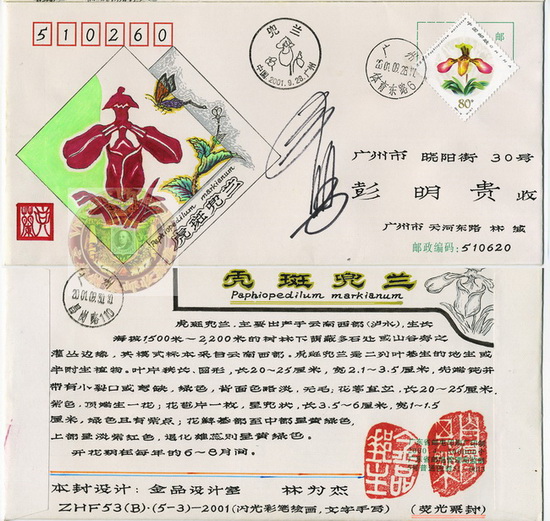 510260
兜兰
中国.2001.9.28.广州
广州
2001.09.28.
体育东路6
中国邮政
80分
邮
广州市 晓阳街 30号
彭明贵 收
广州市 天河东路 林
邮政编码:510620
Paphiopedilum markianum
虎斑兜兰
虎斑兜兰
Paphiopedilum markianum
虎斑兜兰,主要出产于云南西部(泸水),生长
海拔1500米~2,200米的树林下荫蔽多石处或山谷旁之
灌丛边缘,其模式标本采自云南西部。虎斑兜兰是二列叶基生的地生或
半附生植物。叶片狭长、圆形,长20~25厘米,宽2.1~3.5厘米,先端钝并
带有小裂口或弯缺,绿色,背面色略淡,无毛,花葶直立,长20~25厘米,
紫色,顶端生一花;花苞片一枚,呈兜状,长3.5~6厘米,宽1~1.5
厘米,绿色且有紫点;花瓣基部至中部呈黄绿色,
上部呈淡紫红色,退化雄蕊则呈黄绿色。
开花期在每年的6~8月间。
本封设计:金品设计室 林为杰
ZHF53(B)·(5-3)-2001(闪光彩笔绘画,文字手写)
(荧光票封)